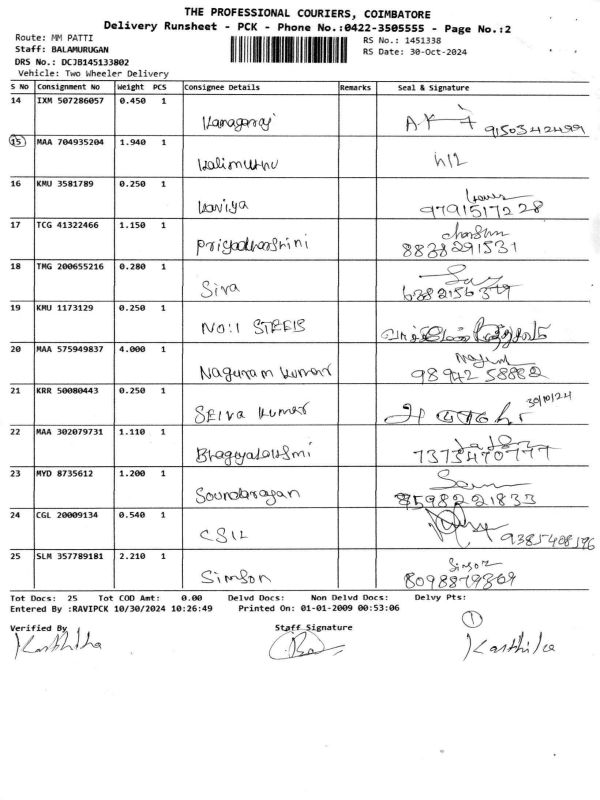 THE PROFESSIONAL COURIERS, COIMBATORE
Delivery Runsheet - PCK - Phone No.:0422-3505555 - Page No.:2
Route: MM PATTI
RS No.: 1451338
Staff: BALAMURUGAN
RS Date: 30-Oct-2024
DRS No.: DCJB145133802
Vehicle: Two Wheeler Delivery
S No Consignment No Weight PCS Consignee Details Remarks Seal & Signature
14 IXM 507286057 0.450 1 Kanagaraj 9150342499
15 MAA 704935204 1.940 1 Kalimuthu
16 KMU 3581789 0.250 1 Kaviya 9791517228
17 TCG 41322466 1.150 1 Priyadharshini 8838291531
18 TMG 200655216 0.280 1 Siva
19 KMU 1173129 0.250 1 NO:1 STEELS
20 MAA 575949837 4.000 1 98942 58882
21 KRR 50080443 0.250 1 Selva Kumar 30/10/24
22 MAA 302079731 1.110 1 Bhagyalakshmi 7373470777
23 MYD 8735612 1.200 1 Soundarajan 8598221833
24 CGL 20009134 0.540 1
25 SLM 357789181 2.210 1 Simson Simson
Tot Docs: 25 Tot COD Amt: 0.00 Delvd Docs: Non Delvd Docs: Delvy Pts:
Entered By :RAVIPCK 10/30/2024 10:26:49 Printed On: 01-01-2009 00:53:06
1
Verified By Staff Signature
Karthika Karthika